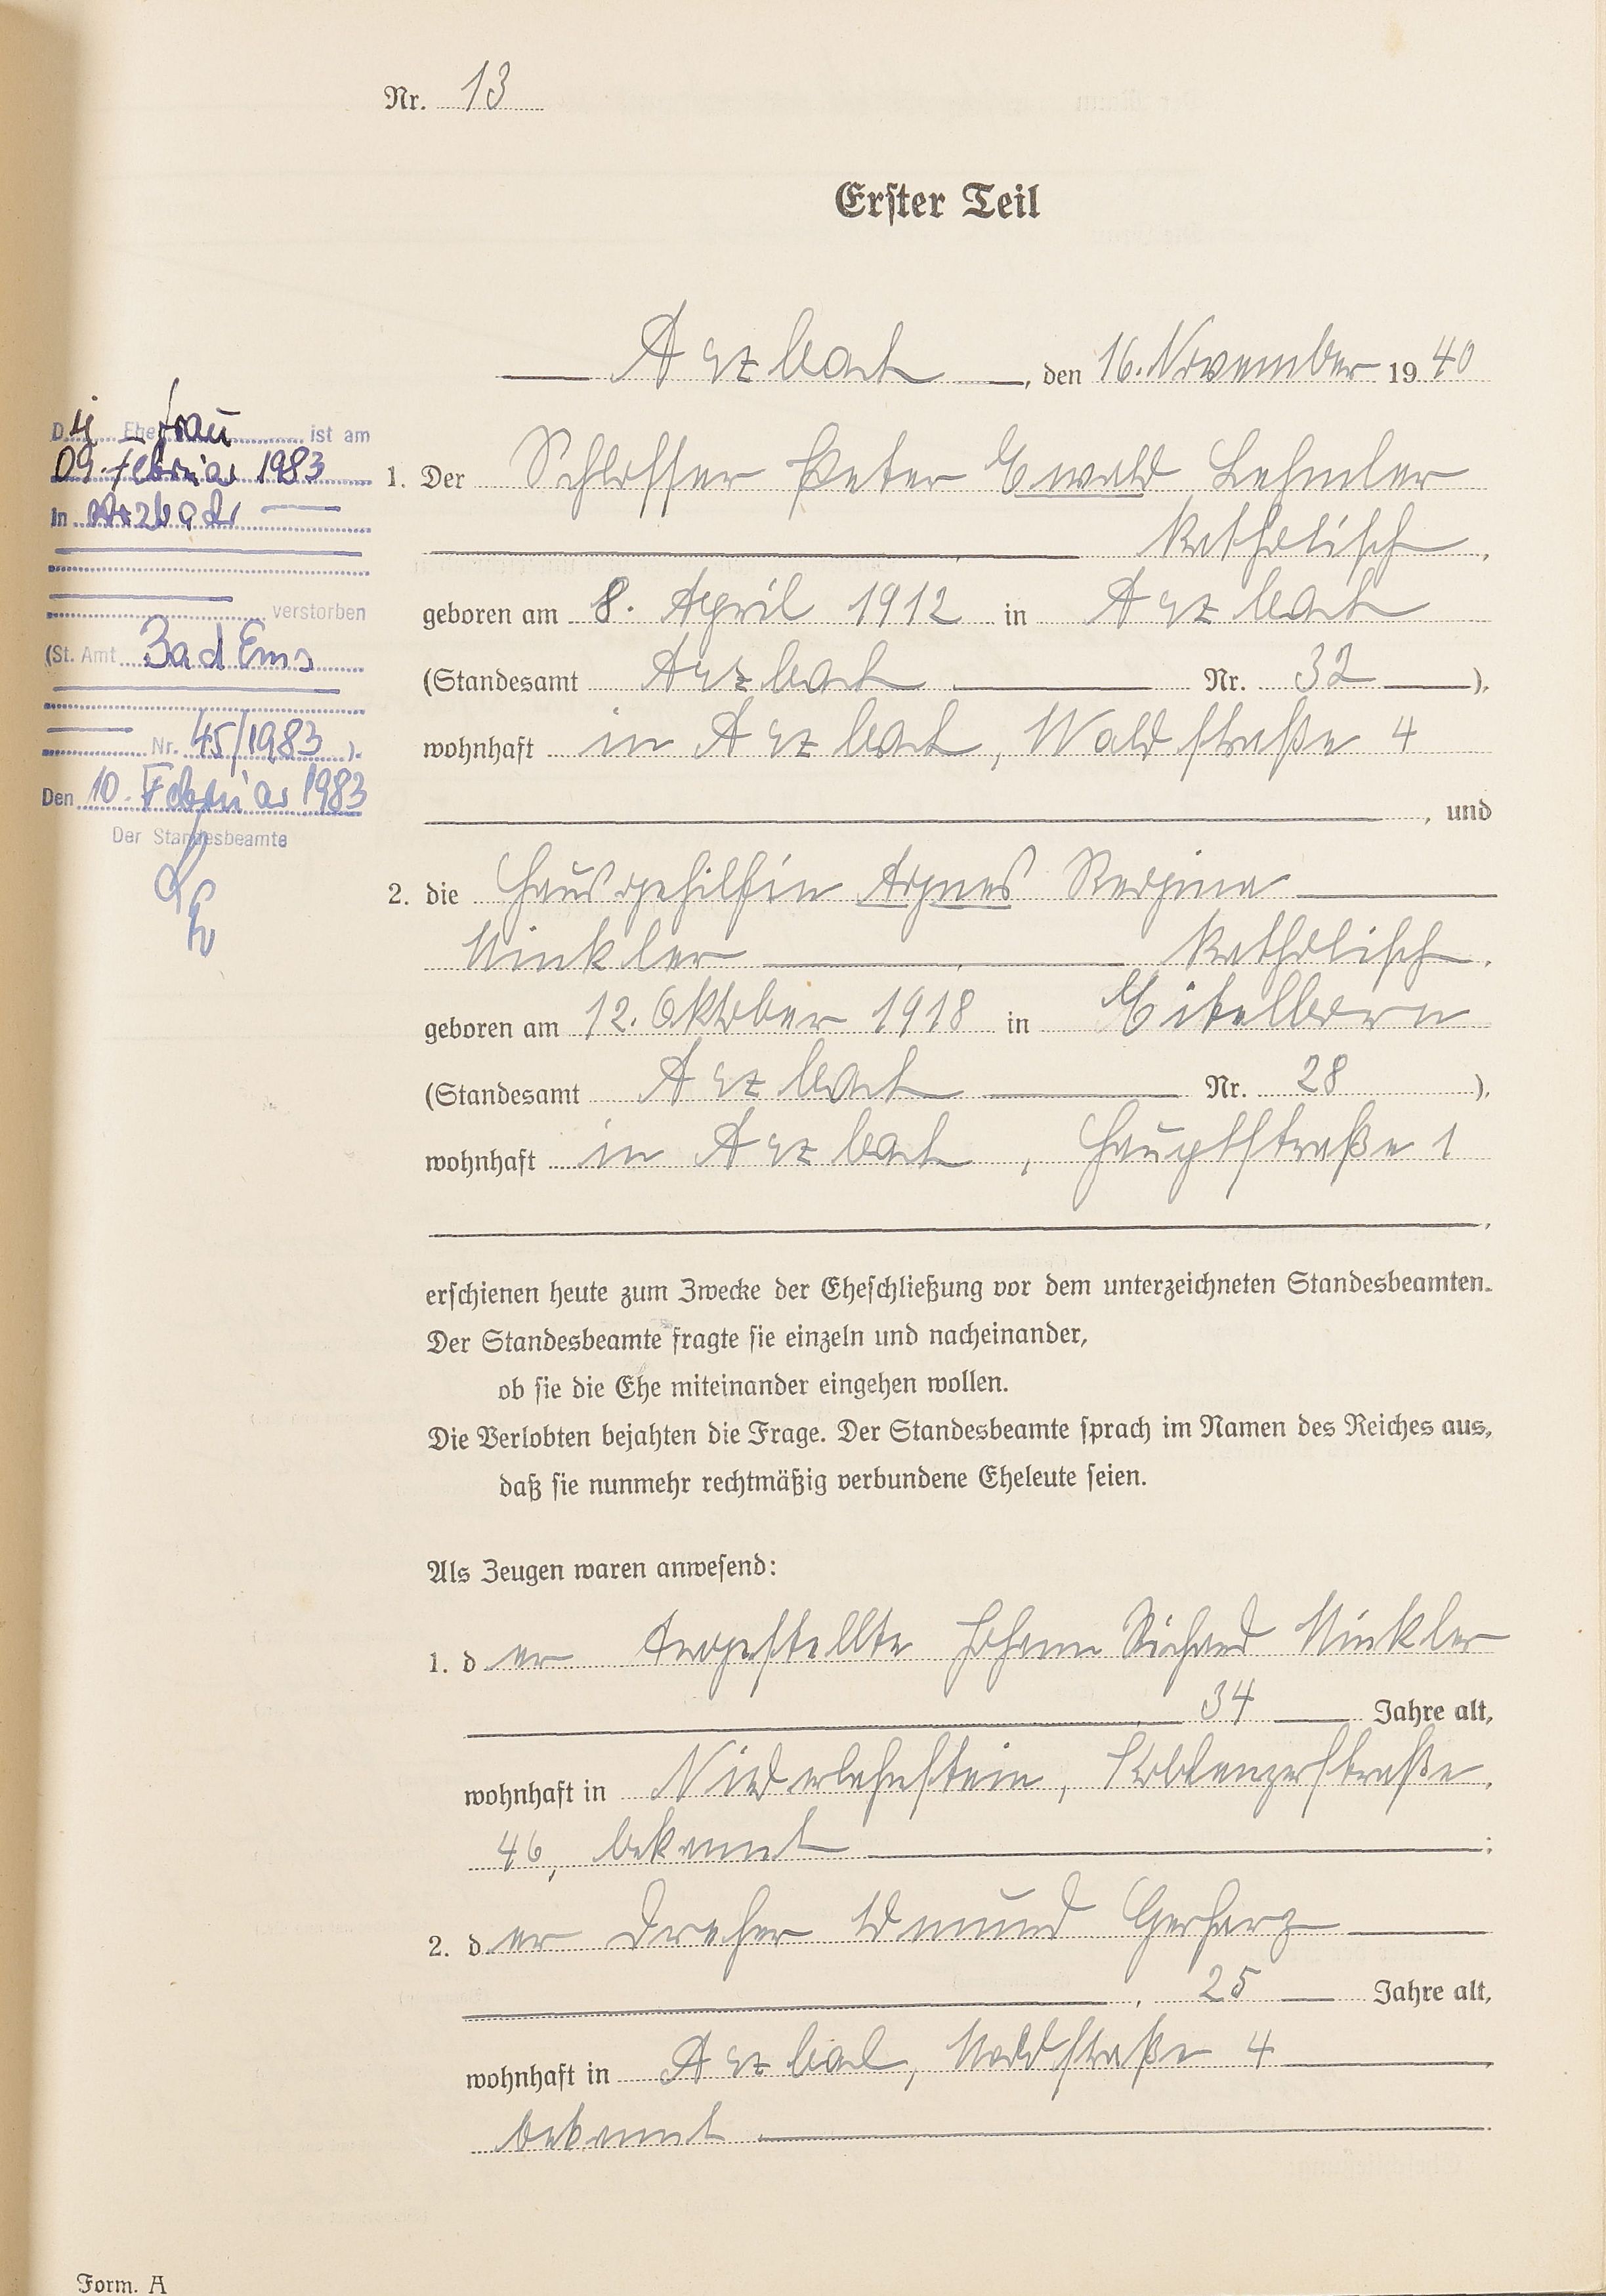 Nr. 13
Erster Teil
Arzbach, den 16. November 1940
Die Ehefrau ist am
09. Februar 1983
in Arzbach
verstorben
(St. Amt Bad Ems
Nr. 45/1983 ).
Den 10. Februar 1983
Der Standesbeamte
1. Der Schlosser Peter Ewald Lehmler
katholisch,
geboren am 8. April 1912 in Arzbach
(Standesamt Arzbach Nr. 32 ),
wohnhaft in Arzbach, Waldstraße 4
, und
2. die Hausgehilfin Agnes Regina
Winkler, katholisch,
geboren am 12. Oktober 1918 in Eitelborn
(Standesamt Arzbach Nr. 28 ),
wohnhaft in Arzbach, Hauptstraße 1
,
erschienen heute zum Zwecke der Eheschließung vor dem unterzeichneten Standesbeamten.
Der Standesbeamte fragte sie einzeln und nacheinander,
ob sie die Ehe miteinander eingehen wollen.
Die Verlobten bejahten die Frage. Der Standesbeamte sprach im Namen des Reiches aus,
daß sie nunmehr rechtmäßig verbundene Eheleute seien.
Als Zeugen waren anwesend:
1. der Angestellte Johann Richard Winkler
, 34 Jahre alt,
wohnhaft in Niederlahnstein, Koblenzerstraße,
46, bekannt ;
2. der Dreher Edmund Gerharz
, 25 Jahre alt,
wohnhaft in Arzbach, Waldstraße 4,
bekannt .
Form. A